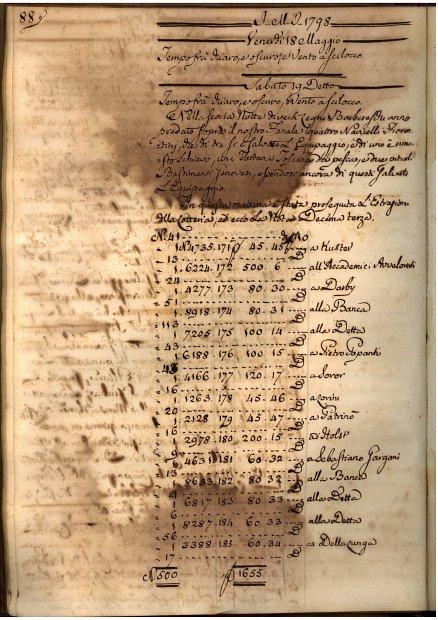 88
J. M. J. 1798
Venerdì 18 Maggio
Tempo frà Chiaro, e oscuro, e Vento a scilocco.
Sabato 19 Detto
Tempo frà Chiaro, e oscuro, e Vento a scilocco.
Nella scorsa Notte
predato sopra il nostro Fanale quattro Navicelli
di tre se salvato L'Equipaggio, e di uno è
Schiavo, una Tartana Toscana da pesca, e due
Bastimenti ancora di questi
L'Equipaggio.
In questa mattina è stata proseguita L'Estrazione
della Lotteria, ed ecco La Nota Decima terza.
N. 41
1 N. 4735. 171 45. 45 a Kuster
13
1. 6224. 172 500. 6 all'Accademici Avvalorati
24
1. 4277 173 80. 30 a Darby
51
1. 8918 174 80. 31 alla Banca
113
1 7205 175 100 14 alla Detta
43
1 6188 176 100. 15 a Pietro Papanti
48
1 4166 177 120. 17 a Soror
16
1 1263 178 45. 46
20
1 2128 179 45. 47
16
1 2978 180 200. 15 Holst
9
1 4631 181 60. 32 a Sebastiano Gargani
13
1 8633 182 80. 32 alla Banca
4
1 6817 183 80. 33 alla Detta
6
1 8287 184 60. 33 alla Detta
56
1 3388 185 60. 34 a Dellazunga
17
N. 500 1655